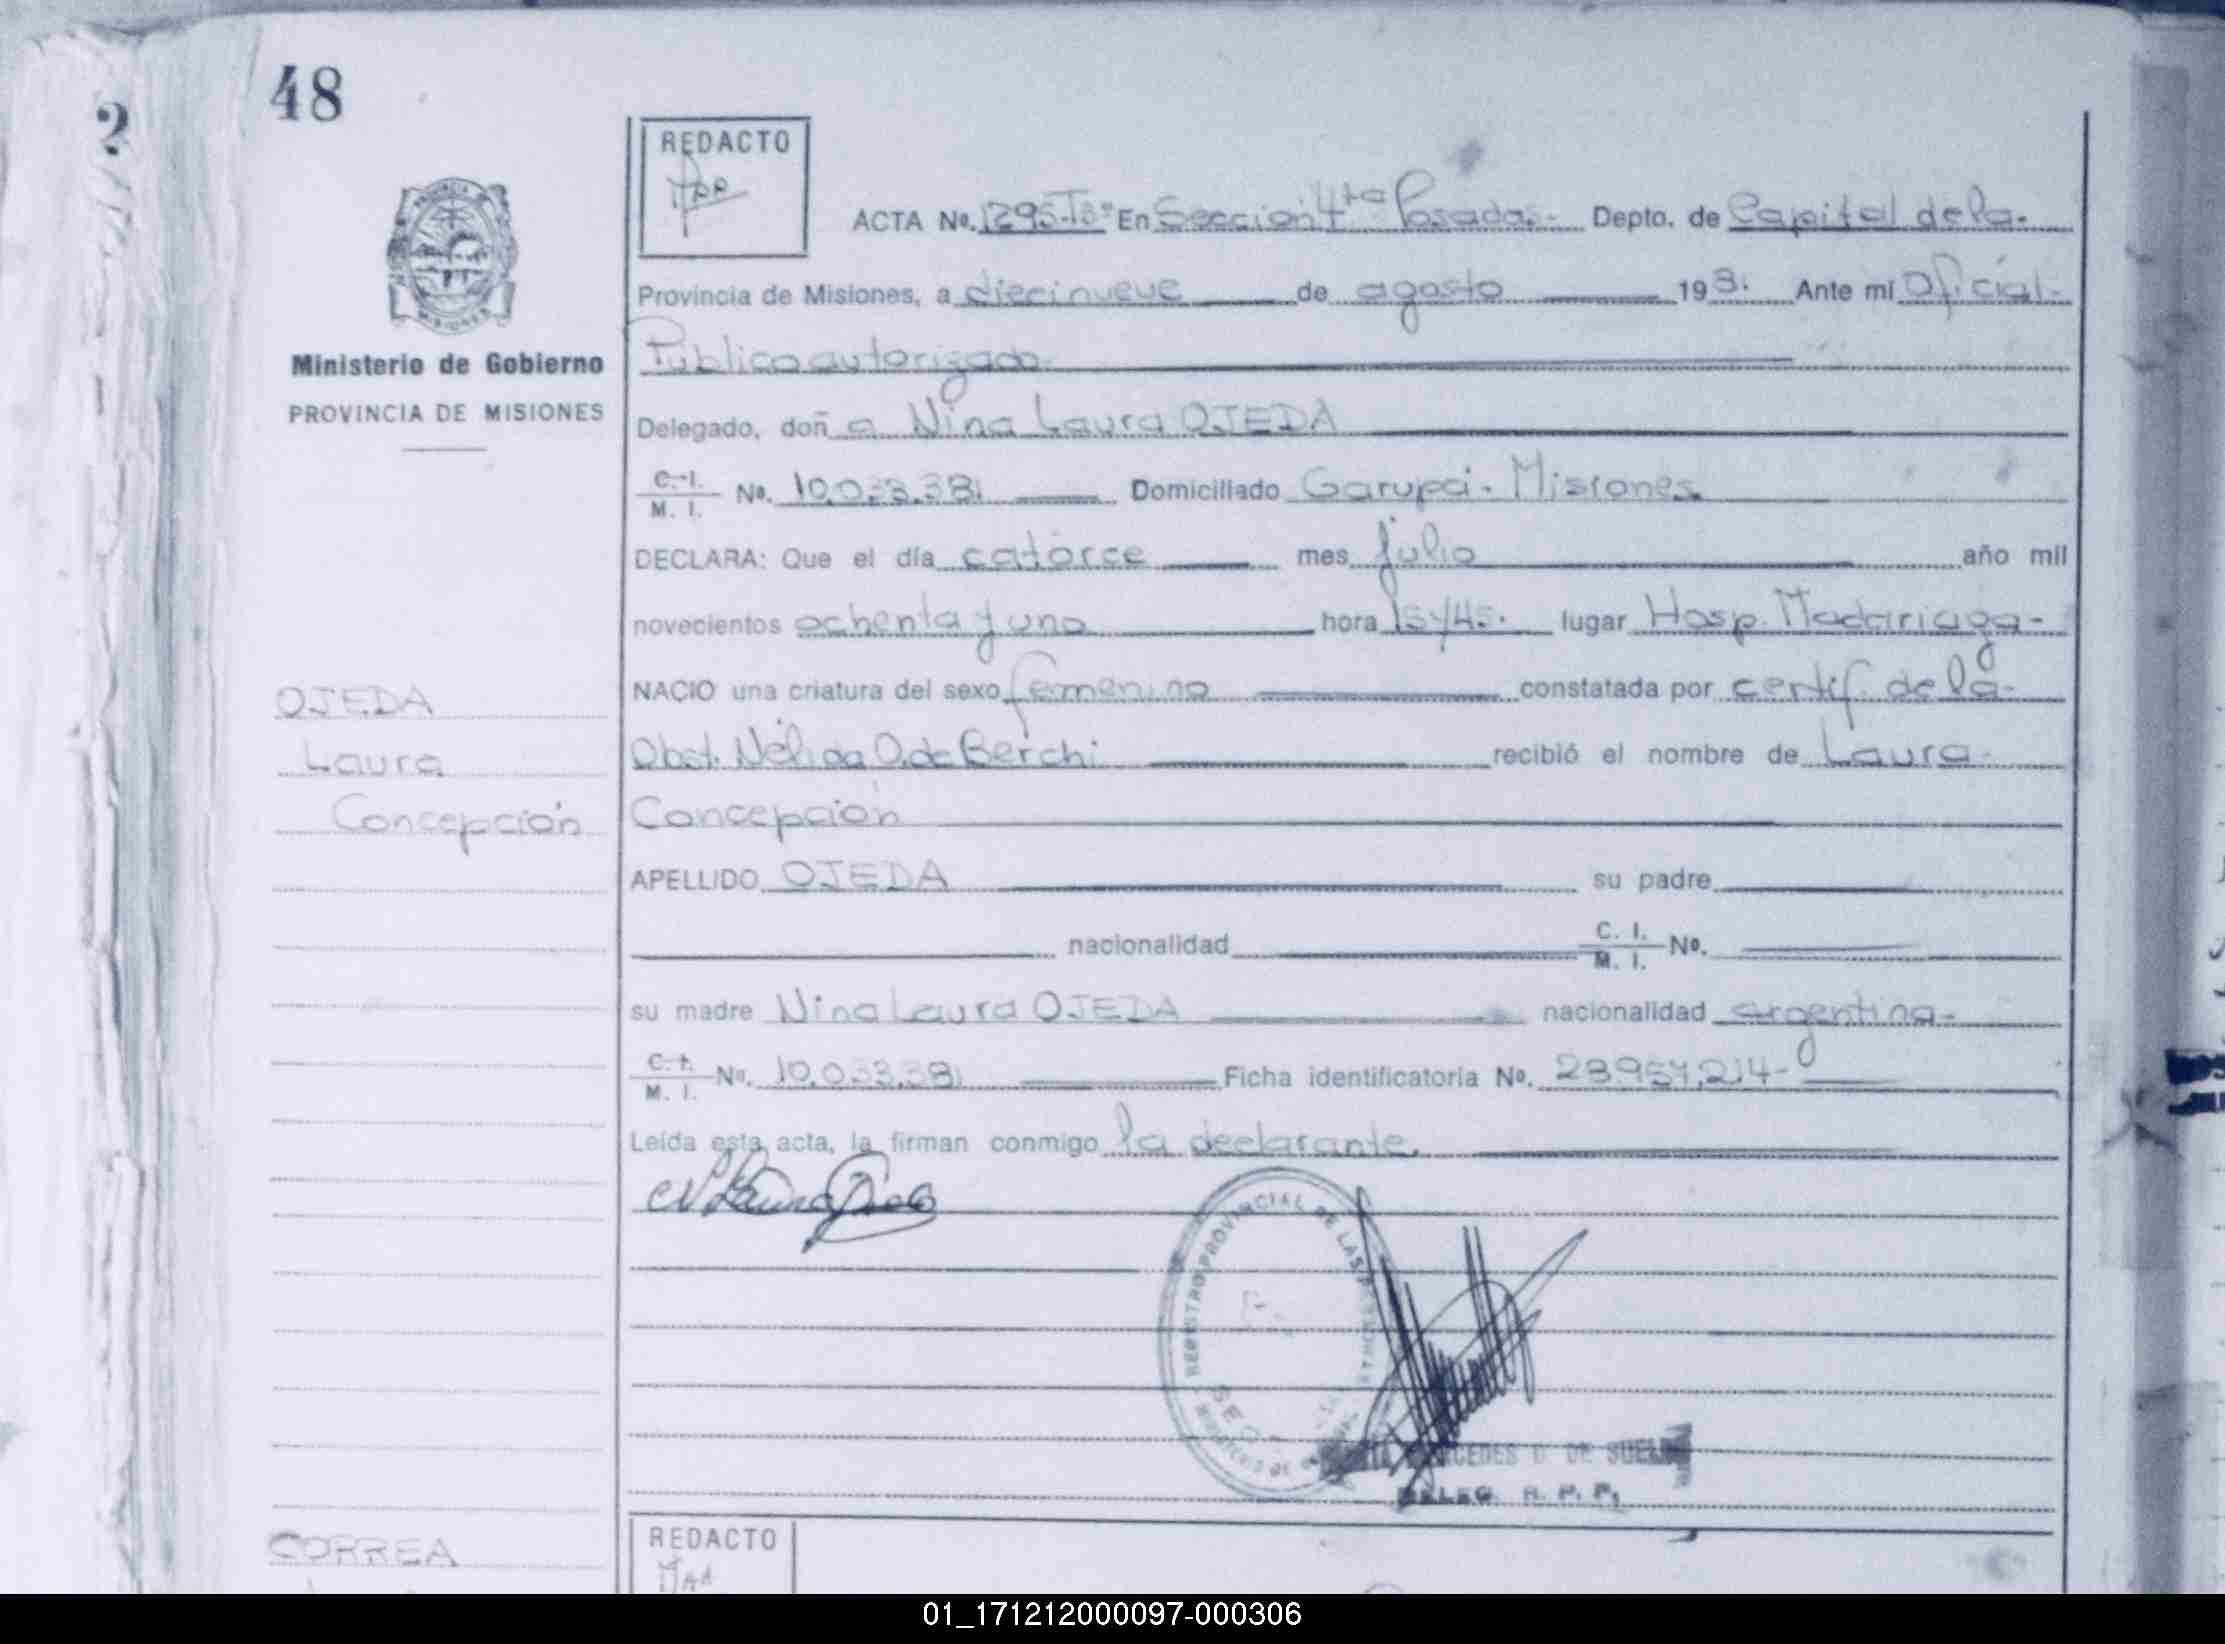 48
2
REDACTO
ACTA No. 1295-Tº En Sección 4ta Posadas- Depto. de Capital de la-
Provincia de Misiones, a diecinueve de agosto 1981 Ante mi Oficial-
Público autorizado-
Ministerio de Gobierno
PROVINCIA DE MISIONES
Delegado, doña Nina Laura OJEDA
C. I. M. I. No. 10.033.381 Domiciliado Garupá. Misiones
DECLARA: Que el día catorce mes julio año mil
novecientos ochenta y uno hora 15y45. lugar Hosp. Madariaga-
NACIO una criatura del sexo femenino constatada por certif. de la-
Obst. Nélida O. de Berchi recibió el nombre de Laura-
Concepción
OJEDA
Laura
Concepción
APELLIDO OJEDA su padre
nacionalidad C. I. M. I. No.
su madre Nina Laura OJEDA nacionalidad argentina-
C. I. M. I. No. 10.033.381 Ficha identificatoria No. 28957.214-
Leída esta acta, la firman conmigo la declarante.
REGISTRO PROVINCIAL DE LAS PERSONAS
DE SUELO
DELEG. R. P. P.
CORREA
REDACTO
01_171212000097-000306